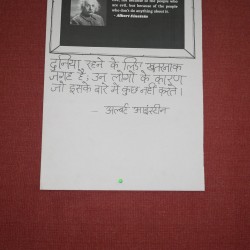 are evil, but because of the people
who don't do anything about it.
- Albert Einstein
दुनिया रहने के लिए खतरनाक
जगह है; उन लोगों के कारण
जो इसके बारे में कुछ नहीं करते।
- अल्बर्ट आइंस्टीन